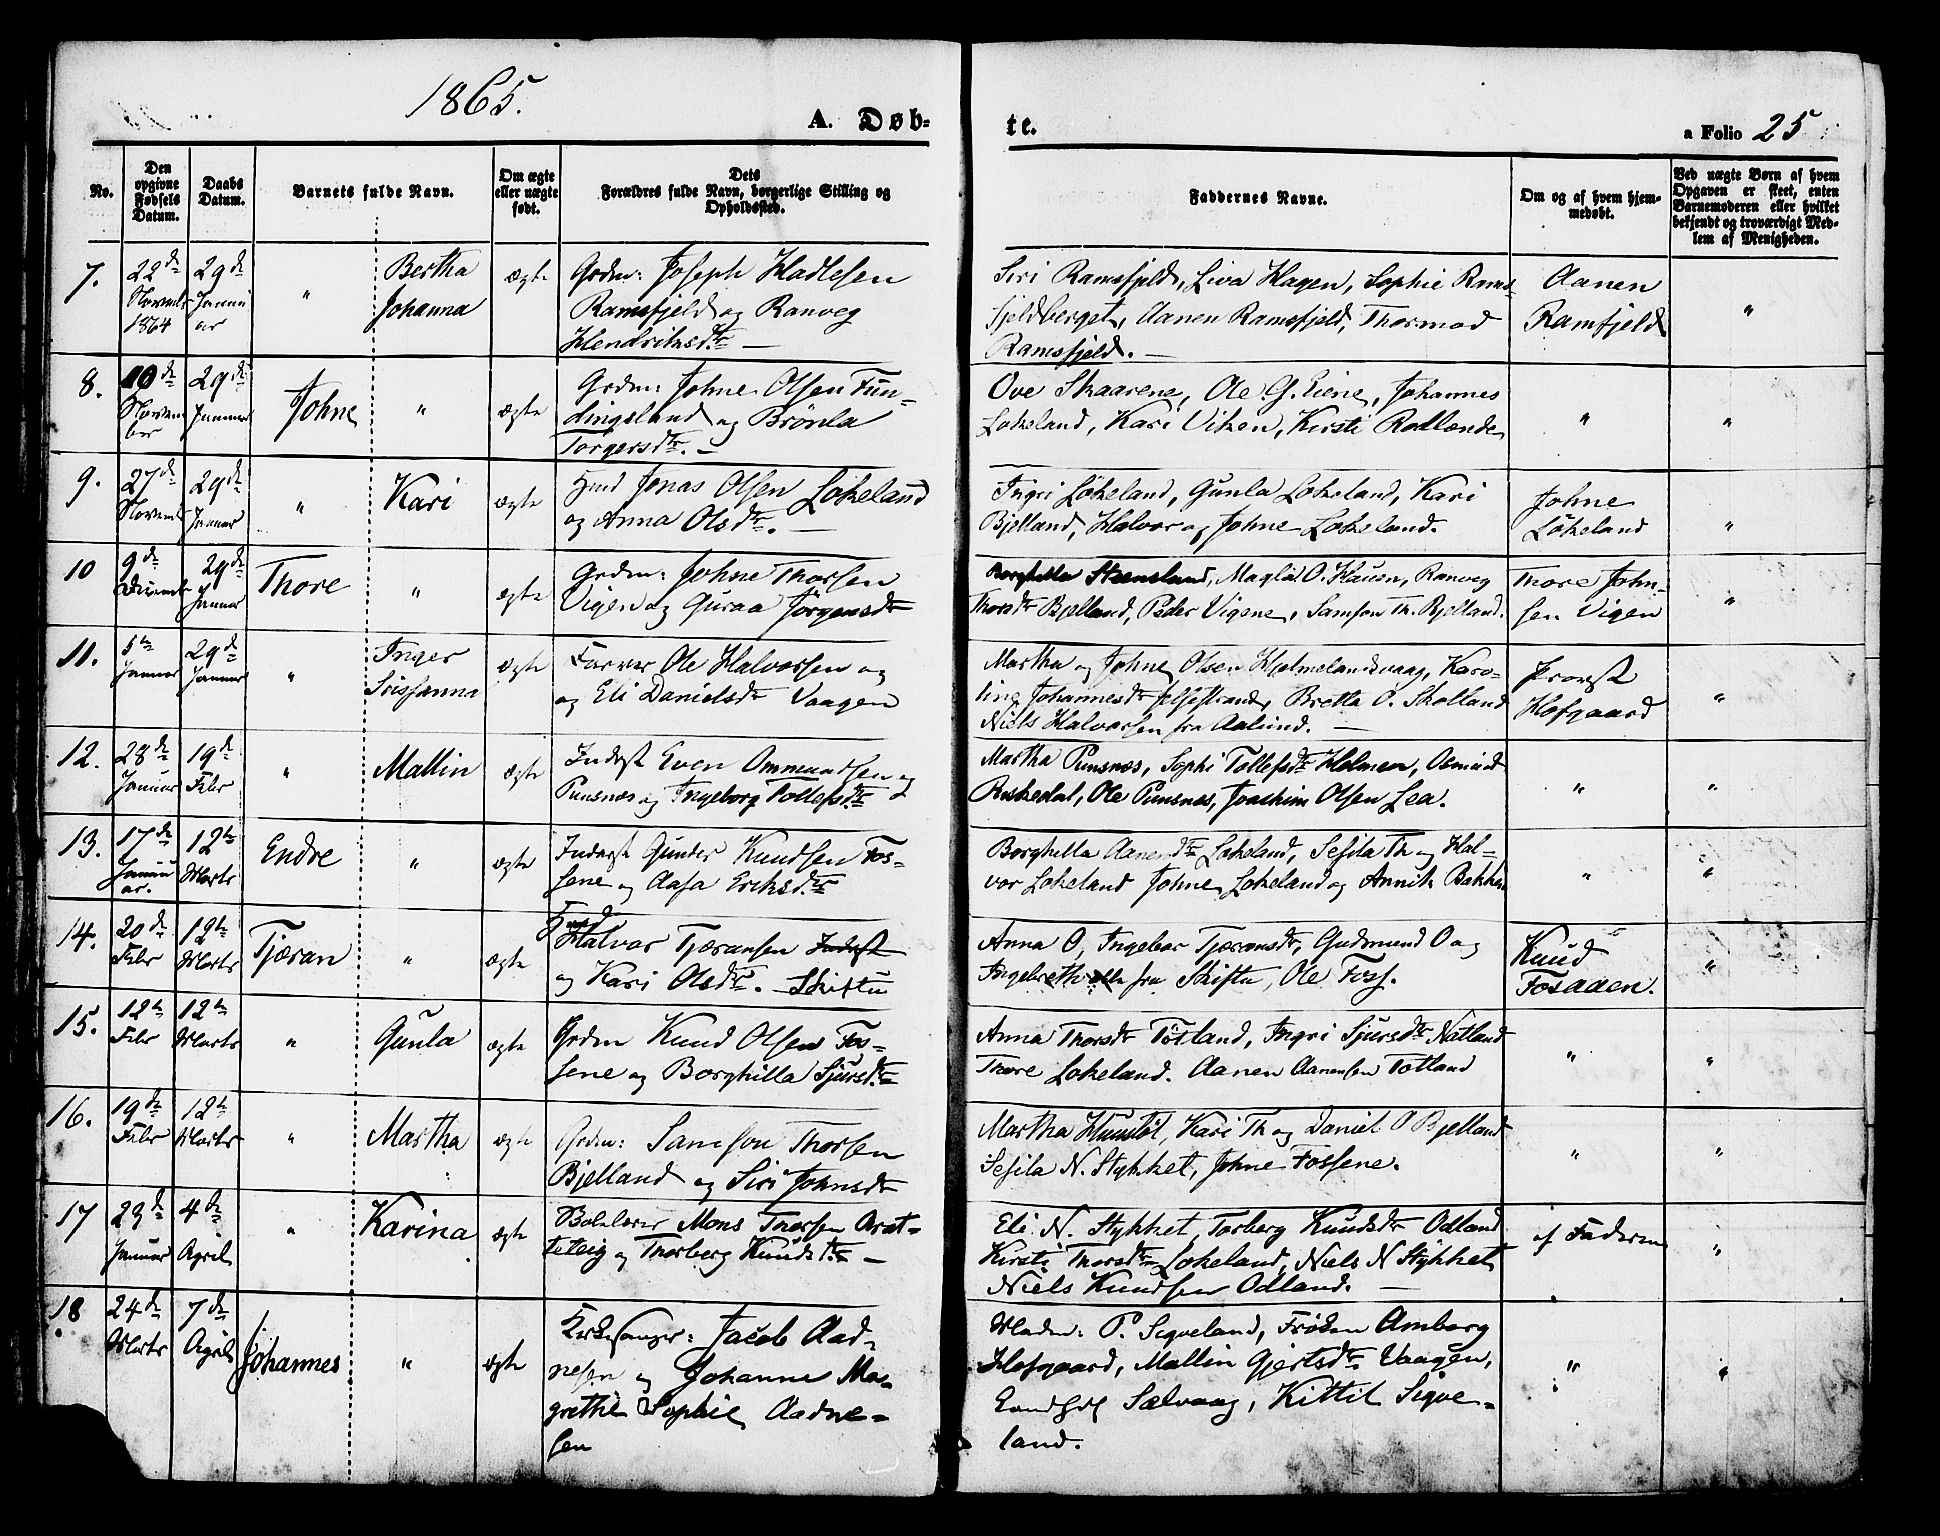 1865.
A. Døb-
te.
a Folio 25
No.
Den opgivne Fødsels Datum.
Daabs Datum.
Barnets fulde Navn.
Om ægte eller uægte født.
Dets
Forældres fulde Navn, borgerlige Stilling og
Opholdssted.
Faddernes Navne.
Om og af hvem hjem-
medøbt.
Ved uægte Børn af hvem
Opgaven er skeet, enten
Barnemoderen eller hvilket
bekjendt og troværdigt Med-
lem af Menigheden.
7.
22de
Novembr
1864
29de
Janu
ar
"
Bertha
Johanna
ægte
Grdm: Joseph Hadlesen
Ramsfjeld og Ranveg
Hendriksdtr. —
Siri Ramsfjeld, Liva Hagen, Sophie Rams-
fjeldberget, Aanen Ramsfjeld, Thormod
Ramsfjeld. —
Aanen
Ramfjeld
"
8.
10de
Novem
ber
29de
Januar
Johne
"
ægte
Grdm: Johne Olsen Fun-
dingsland og Brønla
Torgersdtr. —
Ove Skaarene, Ole G. Eiene, Johannes
Lokeland, Kari Viken, Kirsti Rødlende
"
"
9.
27de
Novembr
29de
Januar
"
Kari
ægte
Hmd Jonas Olsen Løkeland
og Anna Olsdtr. —
Ingri Løkeland, Gunla Lokeland, Kari
Bjelland, Halvor og Johne Lokeland.
Johne
Løkeland
"
10
9de
Decembr
29de
Januar
Thore
"
ægte
Grdm: Johne Thorsen
Vigen og Guraa Jørgensdtr
Borghilla Steensland, Maglil O. Hauen, Ranveg
Thorsdtr Bjelland, Peder Vigene, Samson Th. Bjelland.
Thore John-
sen Vigen
"
11.
5te
Januar
29de
Januar
"
Inger
Sussanna
ægte
Farver Ole Halvorsen og
og Eli Danielsdtr Vaagen
Martha og Johne Olsen Hjelmelandsvaag, Karo-
line Johannesdtr Jelsestrand, Bretta O. Skolland
Niels Halvorsen fra Aalsund. —
Provst
Hofgaard
"
12.
28de
Januar
19de
Febr
"
Mallin
ægte
Inderst Even Ommundsen
Punsnes og Ingeborg Tollefsdtr
Martha Punsnes, Sophi Tollefsdtr Holmen, Osmund
Riskedal, Ole Punsnes, Joachim Olsen Lea.
"
"
13.
17de
Janu
ar.
12te
Marts
Endre
"
ægte
Inderst Gunder Knudsen Fos-
sene og Aasa Eriksdtr
Borghilla Aanensdtr Lokeland, Sesila Th og Hal-
vor Lokeland Johne Lokeland og Annik Bakken
"
"
14.
20de
Febr
12te
Marts
Tjæran
"
ægte
Hmd
Halvor Tjæransen Inderst
og Kari Olsdtr. Skiftu
Anna O, Ingebor Tjæransdtr, Gudmund O og
Ingebreth alle fra Skiftu, Ole Foss.
Knud
Fosaaen.
"
15.
12te
Febr
12te
Marts
"
Gunla
ægte
Grdm Knud Olsen Fos-
sene og Borghilla Sjursdtr
Anna Thorsdtr Totland, Ingri Sjursdtr Natland
Thore Lokeland. Aanen Aanensen Totland
"
"
16.
19de
Febr
12te
Marts
"
Martha
ægte
Grdm: Samson Thorsen
Bjelland og Siri Johnsdtr
Martha Hunstøl, Kari Th og Daniel O Bjelland
Sesila N. Stykket, Johne Fossene.
"
"
17
23de
Januar
4de
April
"
Karina
ægte
Bødker Mons Thorsen Brat-
teteig og Thorberg Knudsdtr —
Eli N. Stykket Torberg Knudsdtr Odland
Kirsti Thorsdtr Lokeland, Niels N Stykket
Niels Knudsen Odland. —
af Faderen
"
18
24de
Marts
7de
April
Johannes
"
ægte
Kirkesanger: Jacob Aad-
nesen og Johanne Ma-
grethe Sophie Aadne-
sen
Madm: P. Sigveland, Frøken Amberg
Hofgaard, Mallin Gjertsdtr Vaagen,
Sælvaag, Kittil Sigve-
land.
"
"